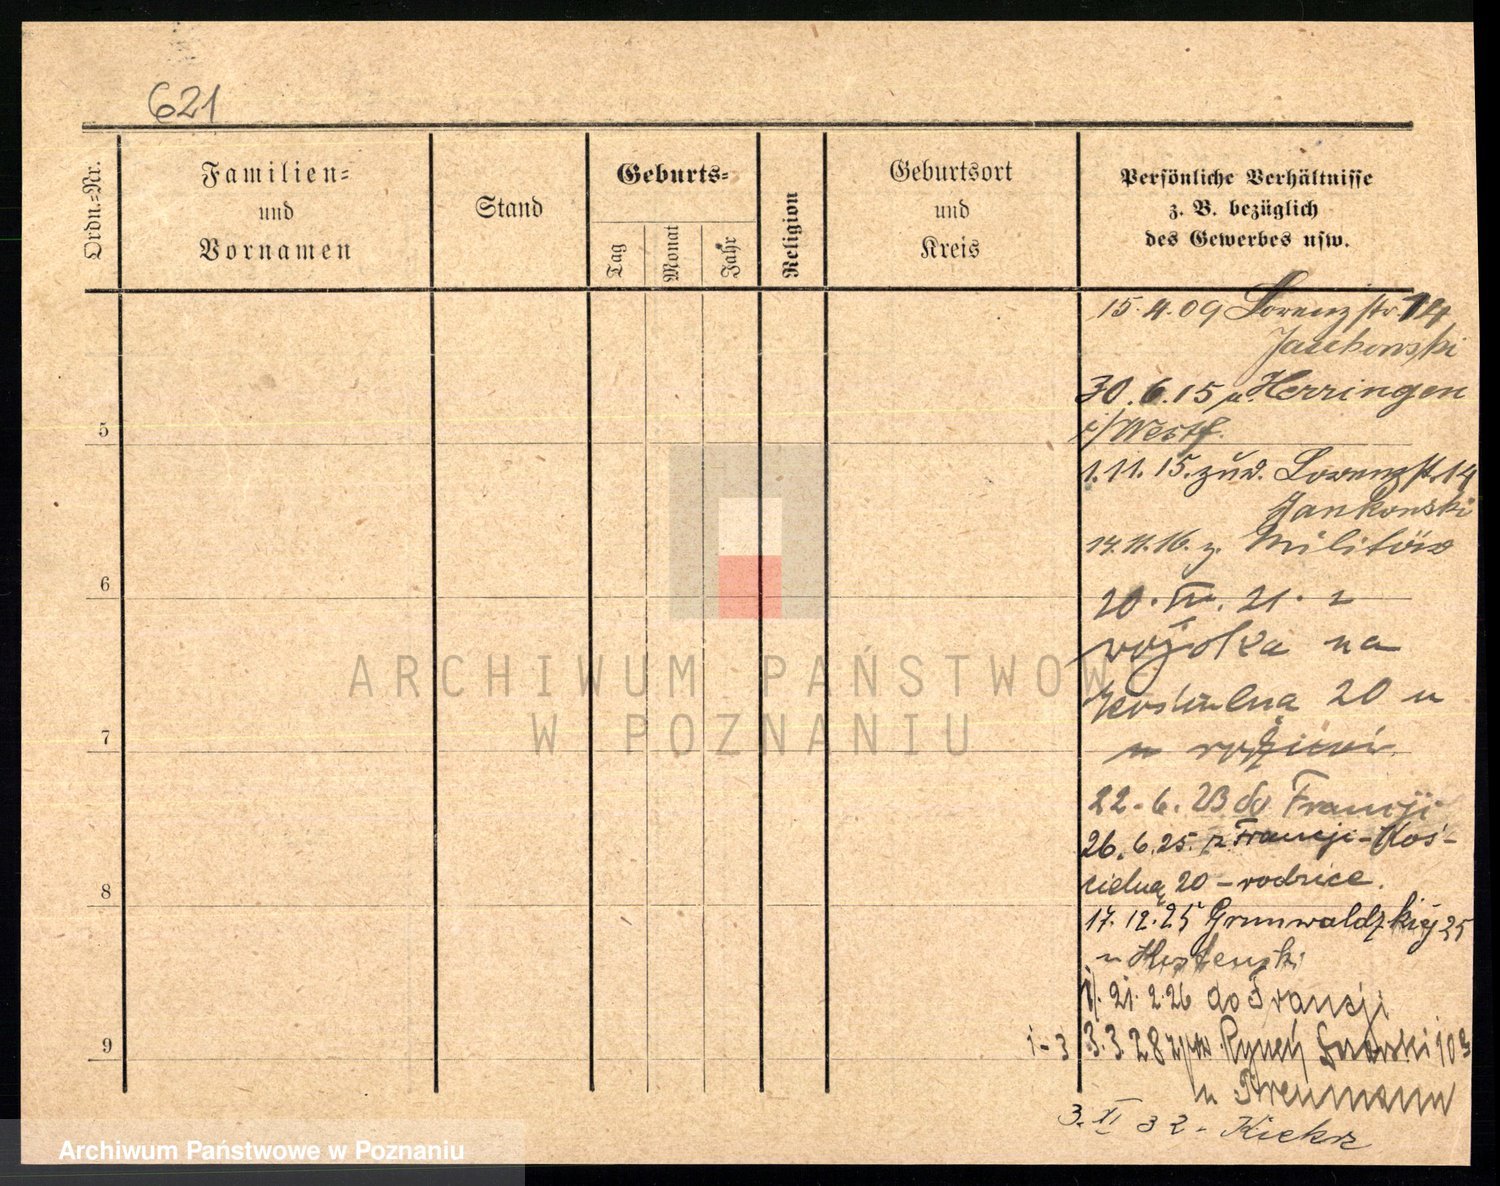 621
Ordn.-Nr.
Familien-
und
Vornamen
Stand
Geburts-
Tag
Monat
Jahr
Religion
Geburtsort
und
Kreis
Persönliche Verhältnisse
z. B. bezüglich
des Gewerbes usw.
15.4.09 Lorenzstr. 14
Jankowski
30.6.15 n. Herringen
i/Westf.
5
1.11.15. zur. Lorenzstr 14
Jankowski
14.11.16. z. Militär
6
20. III. 21. z
wojska na
20 u
7
22.6.23 do Francji
26.6.25. z Francji - Koś-
cielną 20 - rodzice.
8
17.12.25 Grunwaldzkiej 25
u
21.2.26 do Francji
9
1-3
3.3.28 Rynek 103
u
3. XI 32 - Kiekrz
ARCHIWUM PAŃSTWOWE
W POZNANIU
Archiwum Państwowe w Poznaniu